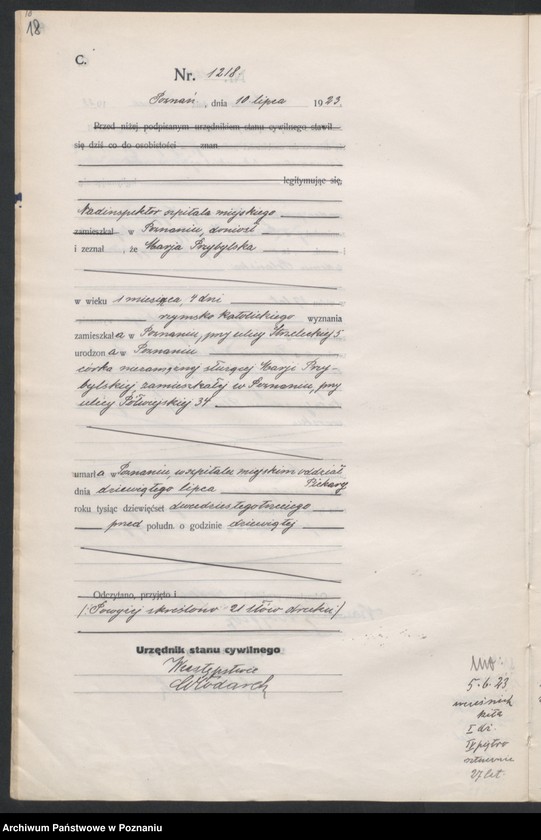 18
C.
Nr. 1218.
Poznań, dnia 10 lipca 1923.
Przed niżej podpisanym urzędnikiem stanu cywilnego stawił
się dziś co do osobistości znan
legitymując się,
Nadinspektor szpitala miejskiego
zamieszkał w Poznaniu, doniósł
i zeznał, że Marja Przybylska
w wieku 1 miesiąca, 4 dni
rzymsko katolickiego wyznania
zamieszkała w Poznaniu, przy ulicy Strzeleckiej 5
urodzona w Poznaniu
córka niezamężnej służącej Marji Przy-
bylskiej, zamieszkałej w Poznaniu, przy
ulicy Półwiejskiej 34
umarła w Poznaniu, w szpitalu miejskim oddział
Piekary
dnia dziewiątego lipca
roku tysiąc dziewięćset dwudziestegotrzeciego
przed połudn. o godzinie dziewiątej
Odczytano, przyjęto i
/: Powyżej skreślono 21 słów druku /
Urzędnik stanu cywilnego
W zastępstwie
Włodarch
5.6.23
I dz.
IV piętro
27 let.
Archiwum Państwowe w Poznaniu